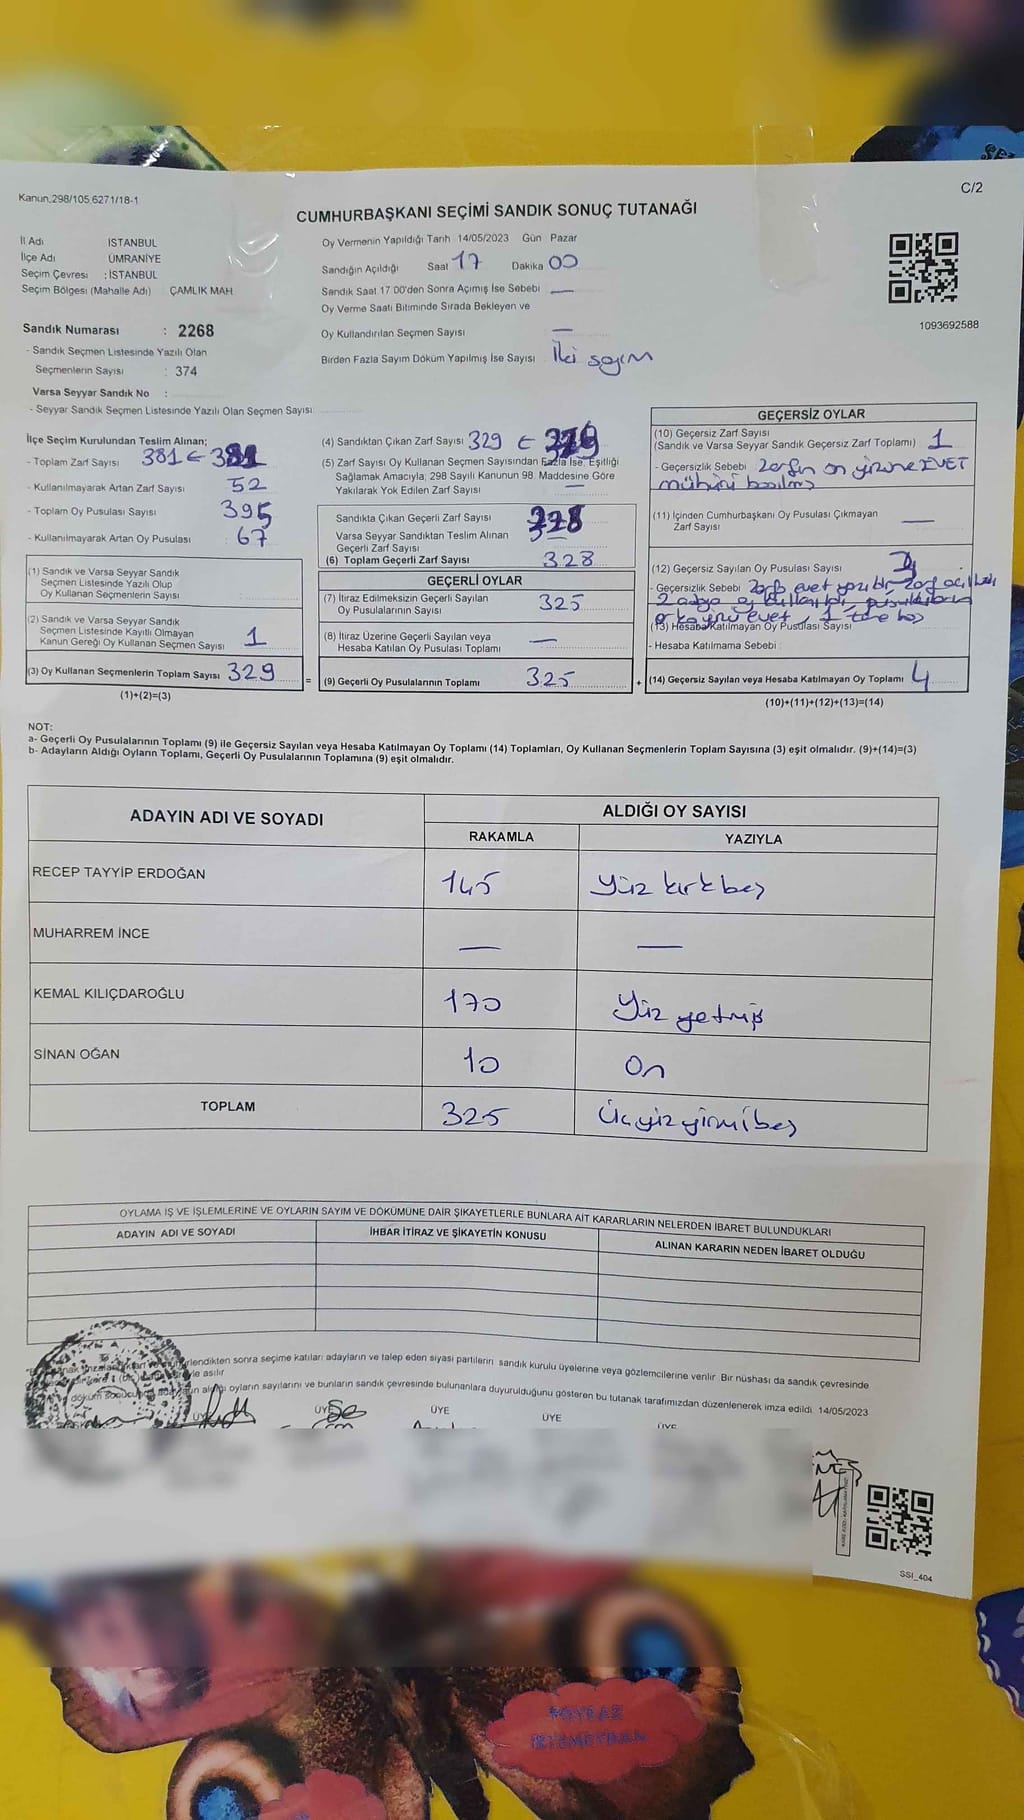 Kanun.298/105.6271/18-1
C/2
CUMHURBAŞKANI SEÇİMİ SANDIK SONUÇ TUTANAĞI
İl Adı İSTANBUL
İlçe Adı ÜMRANİYE
Seçim Çevresi : İSTANBUL
Seçim Bölgesi (Mahalle Adı) ÇAMLIK MAH.
Sandık Numarası : 2268
- Sandık Seçmen Listesinde Yazılı Olan
Seçmenlerin Sayısı : 374
Varsa Seyyar Sandık No :
- Seyyar Sandık Seçmen Listesinde Yazılı Olan Seçmen Sayısı:
Oy Vermenin Yapıldığı Tarih 14/05/2023 Gün Pazar
Sandığın Açıldığı Saat 17 Dakika 00
Sandık Saat 17 00'den Sonra Açımış İse Sebebi —
Oy Verme Saati Bitiminde Sırada Bekleyen ve
Oy Kullandırılan Seçmen Sayısı —
Birden Fazla Sayım Döküm Yapılmış İse Sayısı İki sayım
1093692588
İlçe Seçim Kurulundan Teslim Alınan;
- Toplam Zarf Sayısı 381 ←
- Kullanılmayarak Artan Zarf Sayısı 52
- Toplam Oy Pusulası Sayısı 395
- Kullanılmayarak Artan Oy Pusulası : 67
(1) Sandık ve Varsa Seyyar Sandık
Seçmen Listesinde Yazılı Olup
Oy Kullanan Seçmenlerin Sayısı
(2) Sandık ve Varsa Seyyar Sandık
Seçmen Listesinde Kayıtlı Olmayan
Kanun Gereği Oy Kullanan Seçmen Sayısı 1
(3) Oy Kullanan Seçmenlerin Toplam Sayısı 329 =
(1)+(2)=(3)
(4) Sandıktan Çıkan Zarf Sayısı 329 ←
(5) Zarf Sayısı Oy Kullanan Seçmen Sayısından Fazla İse, Eşitliği
Sağlamak Amacıyla, 298 Sayılı Kanunun 98. Maddesine Göre
Yakılarak Yok Edilen Zarf Sayısı —
Sandıkta Çıkan Geçerli Zarf Sayısı 328
Varsa Seyyar Sandıktan Teslim Alınan
Geçerli Zarf Sayısı —
(6) Toplam Geçerli Zarf Sayısı 328
GEÇERLİ OYLAR
(7) İtiraz Edilmeksizin Geçerli Sayılan
Oy Pusulalarının Sayısı 325
(8) İtiraz Üzerine Geçerli Sayılan veya
Hesaba Katılan Oy Pusulası Toplamı —
(9) Geçerli Oy Pusulalarının Toplamı 325 +
GEÇERSİZ OYLAR
(10) Geçersiz Zarf Sayısı
(Sandık ve Varsa Seyyar Sandık Geçersiz Zarf Toplamı) 1
- Geçersizlik Sebebi Zarfın ön yüzüne EVET
mühürü basılmış
(11) İçinden Cumhurbaşkanı Oy Pusulası Çıkmayan
Zarf Sayısı —
(12) Geçersiz Sayılan Oy Pusulası Sayısı 3
- Geçersizlik Sebebi
(13) Hesaba Katılmayan Oy Pusulası Sayısı
- Hesaba Katılmama Sebebi :
(14) Geçersiz Sayılan veya Hesaba Katılmayan Oy Toplamı 4
(10)+(11)+(12)+(13)=(14)
NOT:
a- Geçerli Oy Pusulalarının Toplamı (9) ile Geçersiz Sayılan veya Hesaba Katılmayan Oy Toplamı (14) Toplamları, Oy Kullanan Seçmenlerin Toplam Sayısına (3) eşit olmalıdır. (9)+(14)=(3)
b- Adayların Aldığı Oyların Toplamı, Geçerli Oy Pusulalarının Toplamına (9) eşit olmalıdır.
ADAYIN ADI VE SOYADI
ALDIĞI OY SAYISI
RAKAMLA YAZIYLA
RECEP TAYYİP ERDOĞAN 145 Yüz kırk beş
MUHARREM İNCE — —
KEMAL KILIÇDAROĞLU 170 Yüz yetmiş
SİNAN OĞAN 10 On
TOPLAM 325 Üçyüzyirmibeş
OYLAMA İŞ VE İŞLEMLERİNE VE OYLARIN SAYIM VE DÖKÜMÜNE DAİR ŞİKAYETLERLE BUNLARA AİT KARARLARIN NELERDEN İBARET BULUNDUKLARI
ADAYIN ADI VE SOYADI İHBAR İTİRAZ VE ŞİKAYETİN KONUSU ALINAN KARARIN NEDEN İBARET OLDUĞU
sonra seçime katılan adayların ve talep eden siyasi partilerin sandık kurulu üyelerine veya gözlemcilerine verilir. Bir nüshası da sandık çevresinde
asılır
aldığı oyların sayılarını ve bunların sandık çevresinde bulunanlara duyurulduğunu gösteren bu tutanak tarafımızdan düzenlenerek imza edildi. 14/05/2023
ÜYE ÜYE ÜYE ÜYE ÜYE
SSI_404
POYRAZ